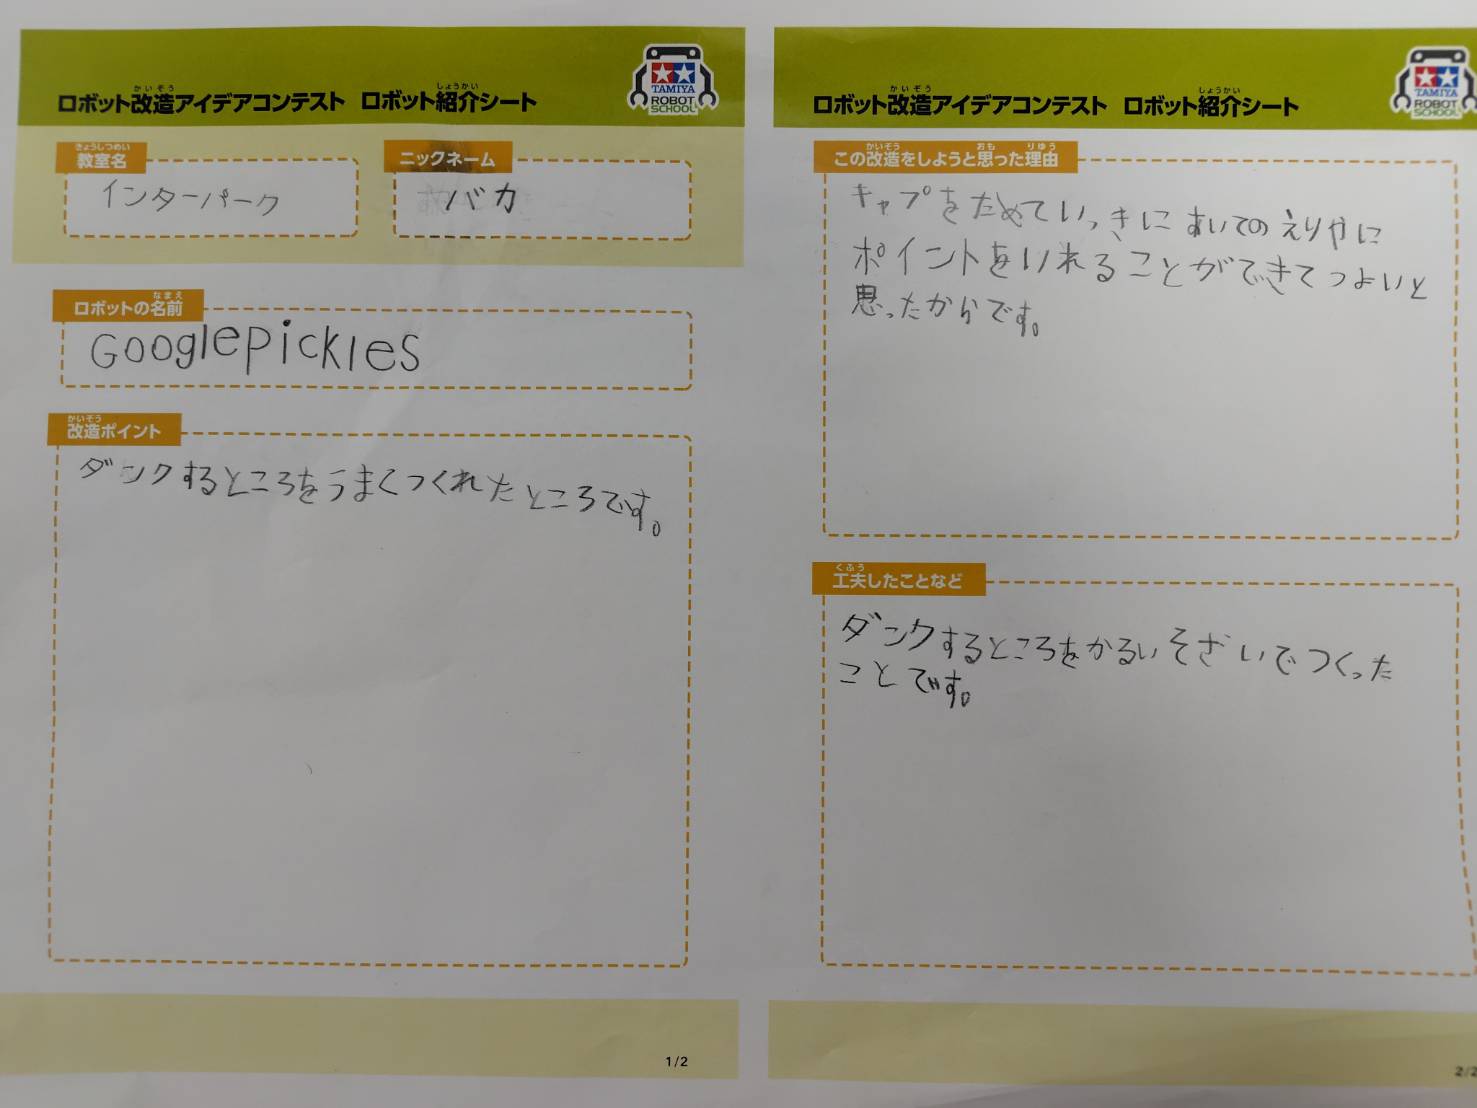 ロボット改造アイデアコンテスト ロボット紹介シート
かいぞう
しょうかい
TAMIYA
ROBOT
SCHOOL
きょうしつめい
教室名
インターパーク
ニックネーム
バカ
なまえ
ロボットの名前
Googlepickles
かいぞう
改造ポイント
ダンクするところをうまくつくれたところです。
1/2
ロボット改造アイデアコンテスト ロボット紹介シート
かいぞう
しょうかい
TAMIYA
ROBOT
SCHOOL
かいぞう おも りゆう
この改造をしようと思った理由
キャプをためていっきにすいてのえりやに
ポイントをいれることができてつよいと
思ったからです。
くふう
工夫したことなど
ダンクするところをかるいそざいでつくった
ことです。
2/2